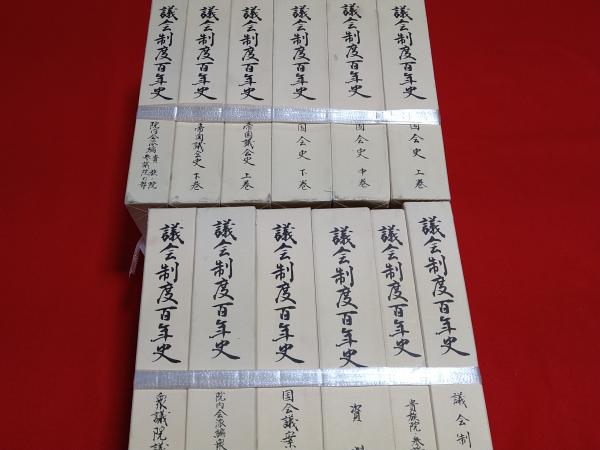 議会制度百年史
国会史 上巻
議会制度百年史
国会史 中巻
議会制度百年史
国会史 下巻
議会制度百年史
帝国議会史 上巻
議会制度百年史
帝国議会史 下巻
議会制度百年史
院内会派編 貴族院
参議院の部
議会制度百年史
議会制
議会制度百年史
貴族院 参
議会制度百年史
資
議会制度百年史
国会議案
議会制度百年史
院内会派編衆
議会制度百年史
衆議院議